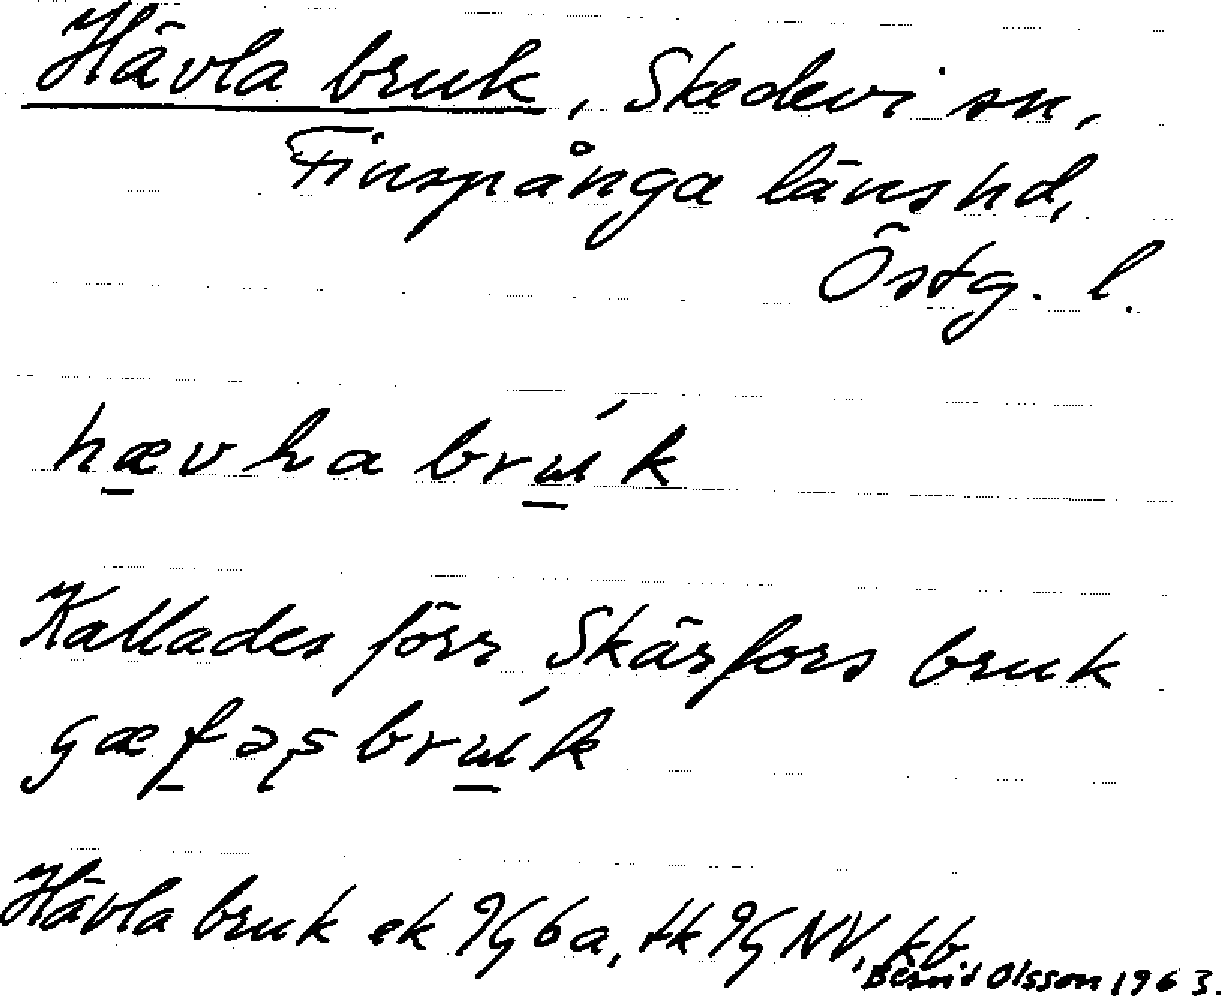 Hävla bruk, Skedevi sn,
Finspånga länshd,
Östg. l.
bruk
Kallades förr Skärfors bruk
bruk
Hävla bruk ek 9G 6a, tk 9G NV, kb
Bernt Olsson 1963.